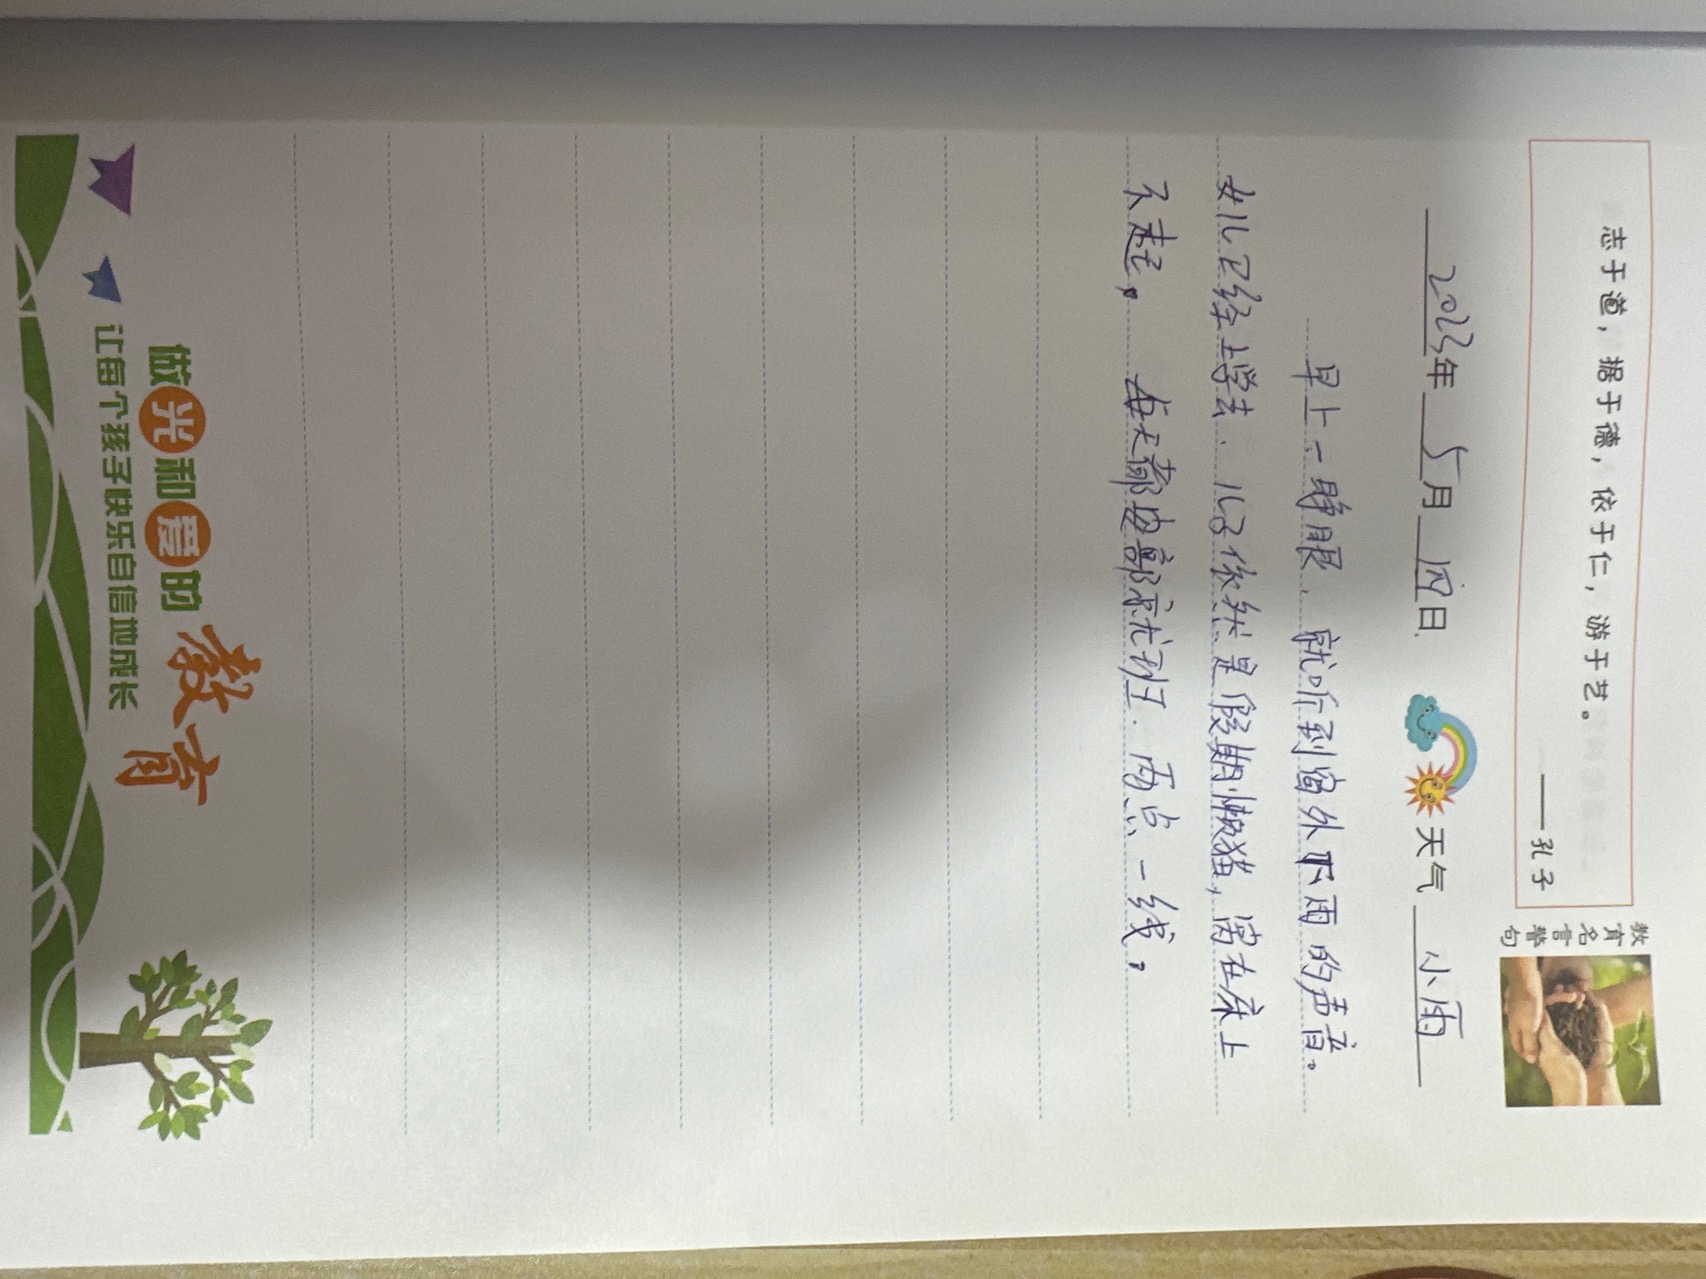 志于道，据于德，依于仁，游于艺。
——孔子
教育名言警句
2023年 5月 四日 天气 小雨
早上一睁眼、就听到窗外下雨的声音。
女儿已经上学去、儿子依然是假期懒猫，窝在床上
不起。每天都按部就班．两点一线。
做光和爱的教育
让每个孩子快乐自信地成长